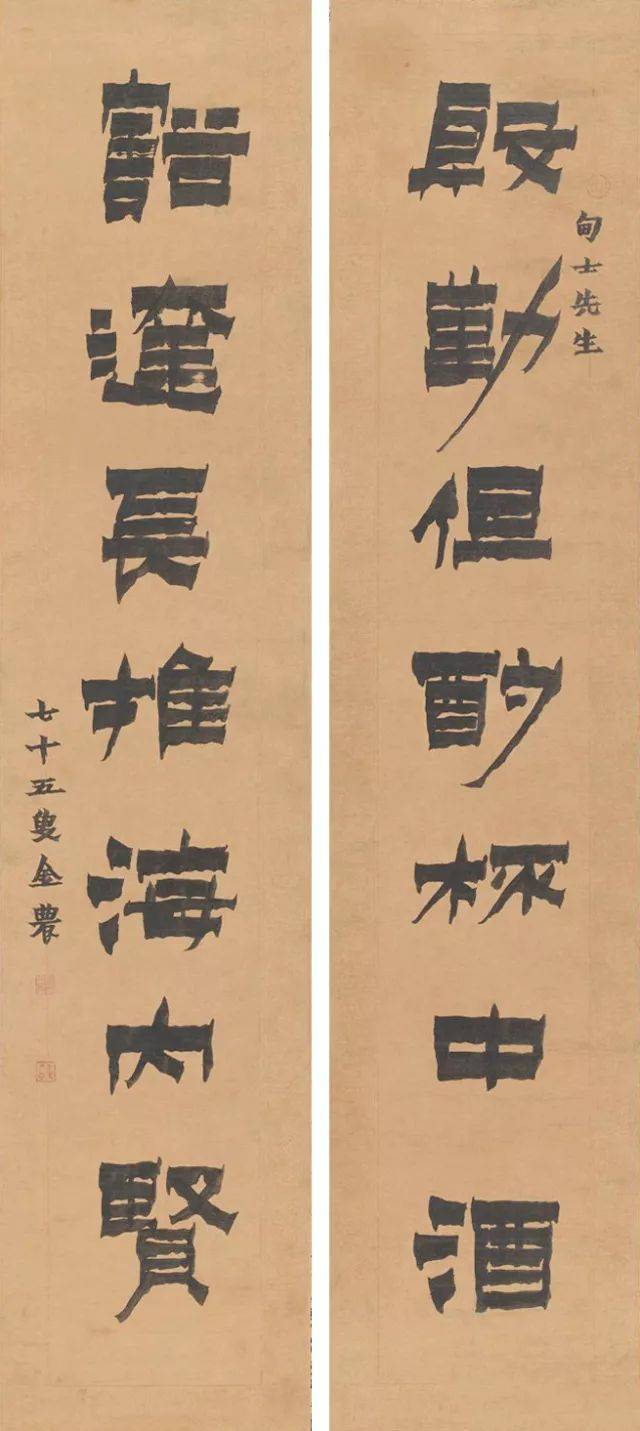 殷勤但酌杯中酒
甸士先生
豁達長推海內賢
七十五叟金農